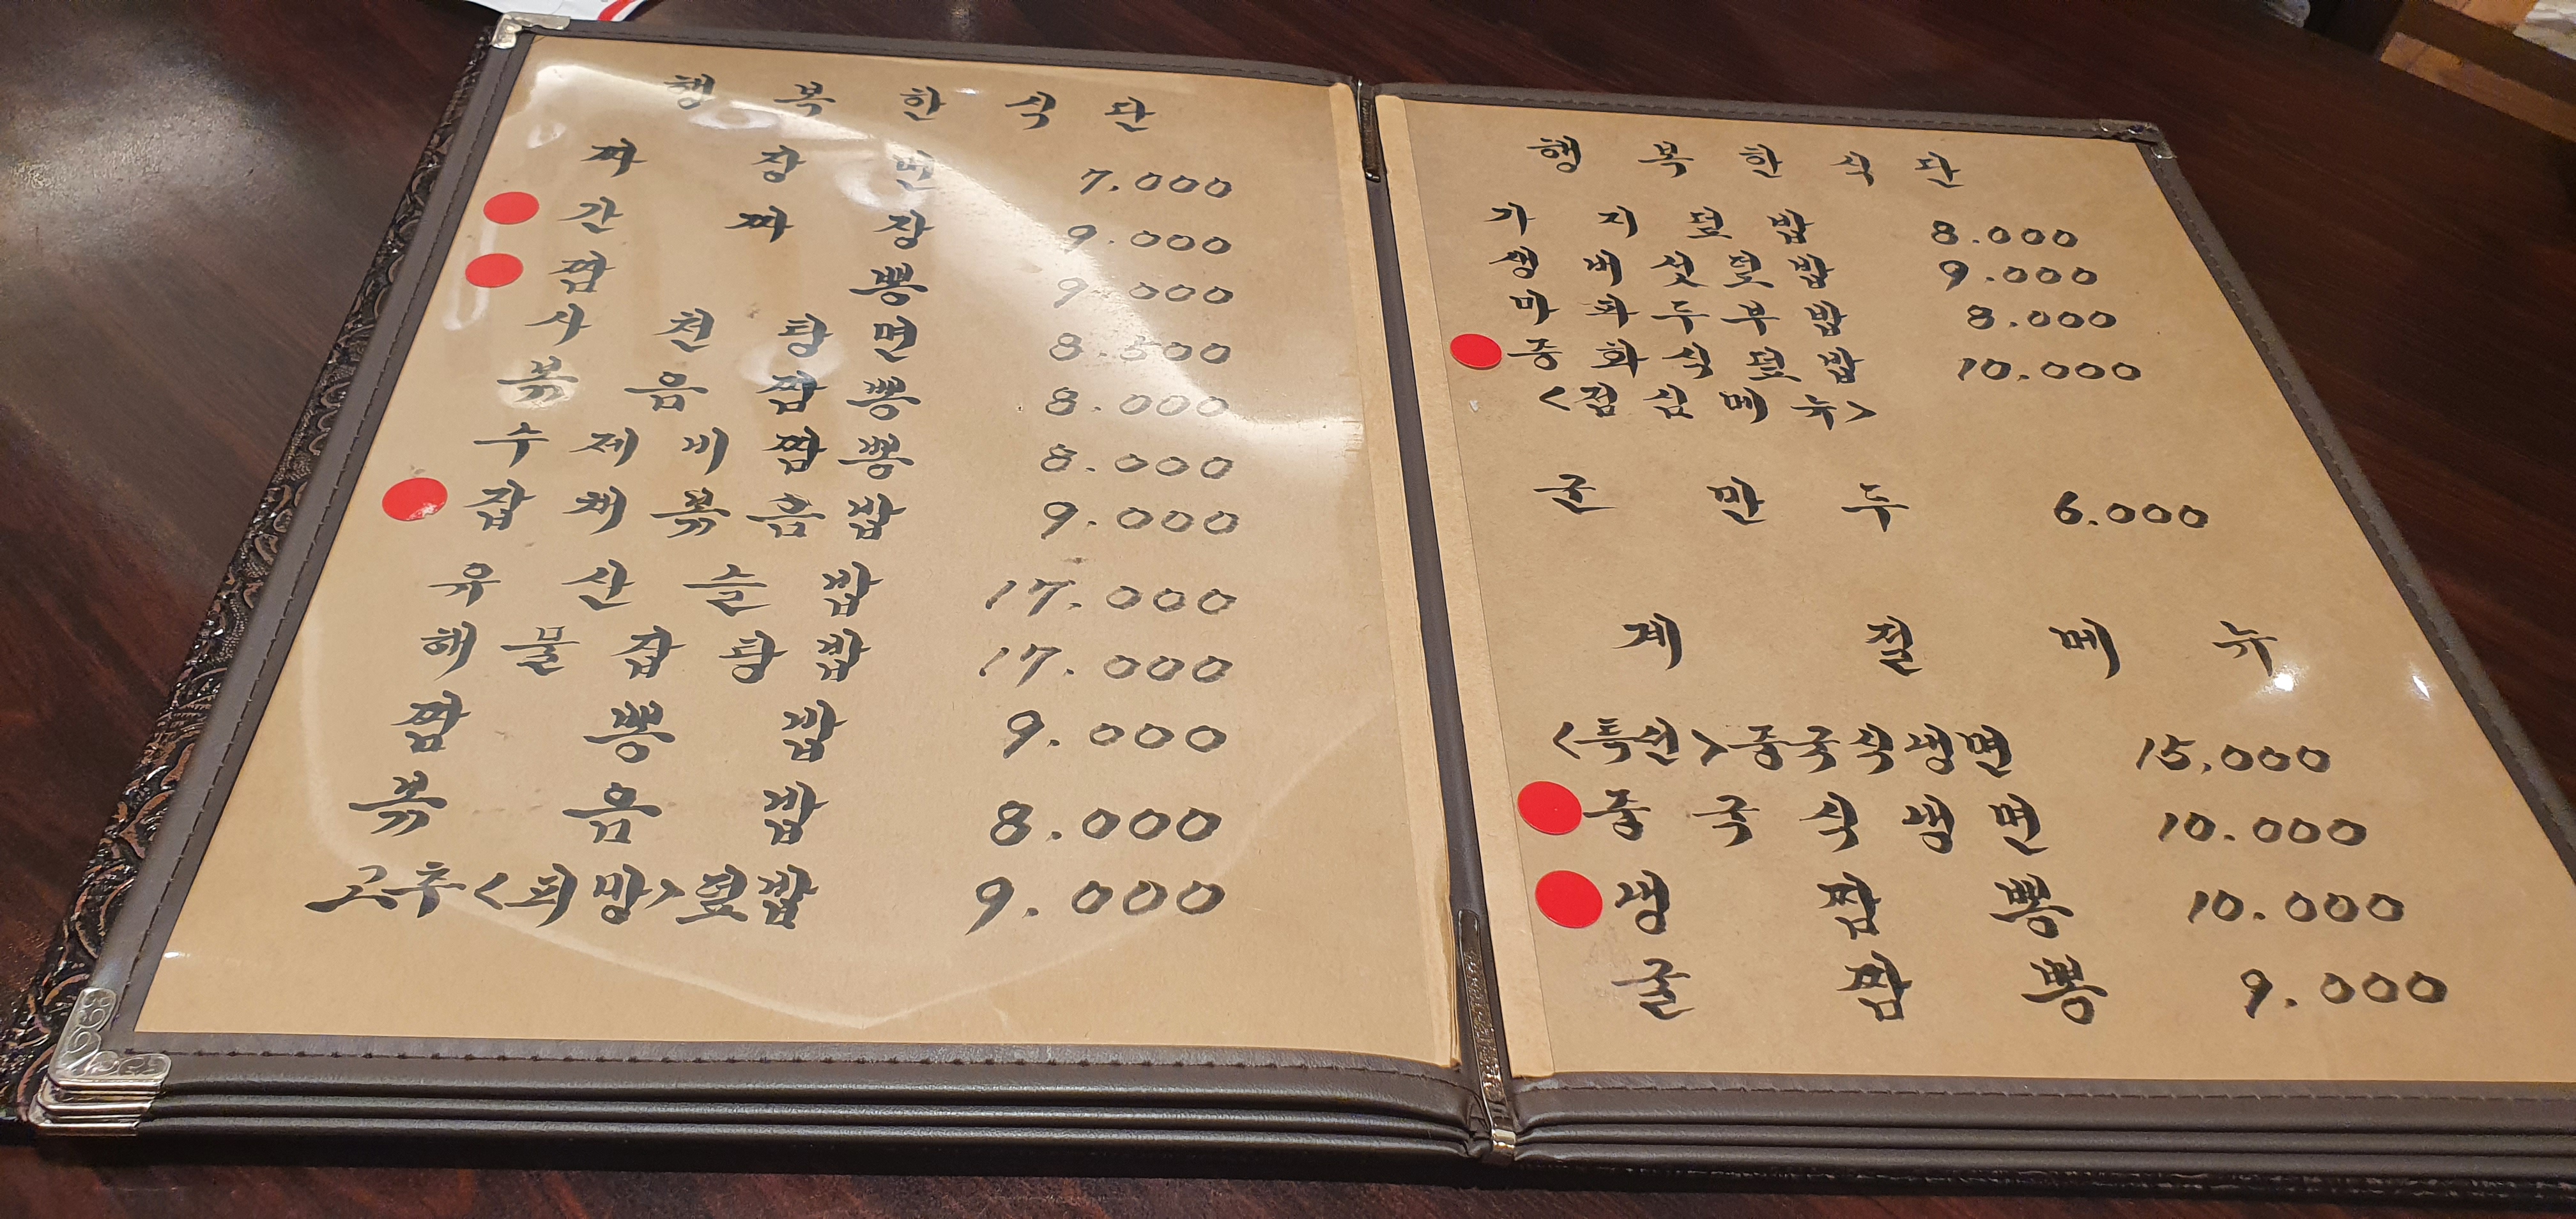 행복한식단
짜장면 7.000
간짜장 9.000
짬뽕 9.000
사천탕면 8.500
볶음짬뽕 8.000
수제비짬뽕 8.000
잡채볶음밥 9.000
유산슬밥 17.000
해물잡탕밥 17.000
짬뽕밥 9.000
볶음밥 8.000
고추<피망>덮밥 9.000
행복한식단
가지덮밥 8.000
생버섯덮밥 9.000
마파두부밥 8.000
중화식덮밥 10.000
<점심메뉴>
군만두 6.000
계절메뉴
<특선>중국식냉면 15,000
중국식냉면 10.000
냉짬뽕 10.000
굴짬뽕 9.000